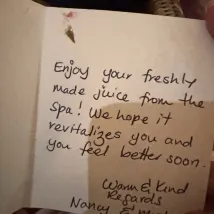 Enjoy your freshly
made juice from the
Spa! We hope it
revitalizes you and
you feel better soon.
Warm & Kind
Regards
Nancy &